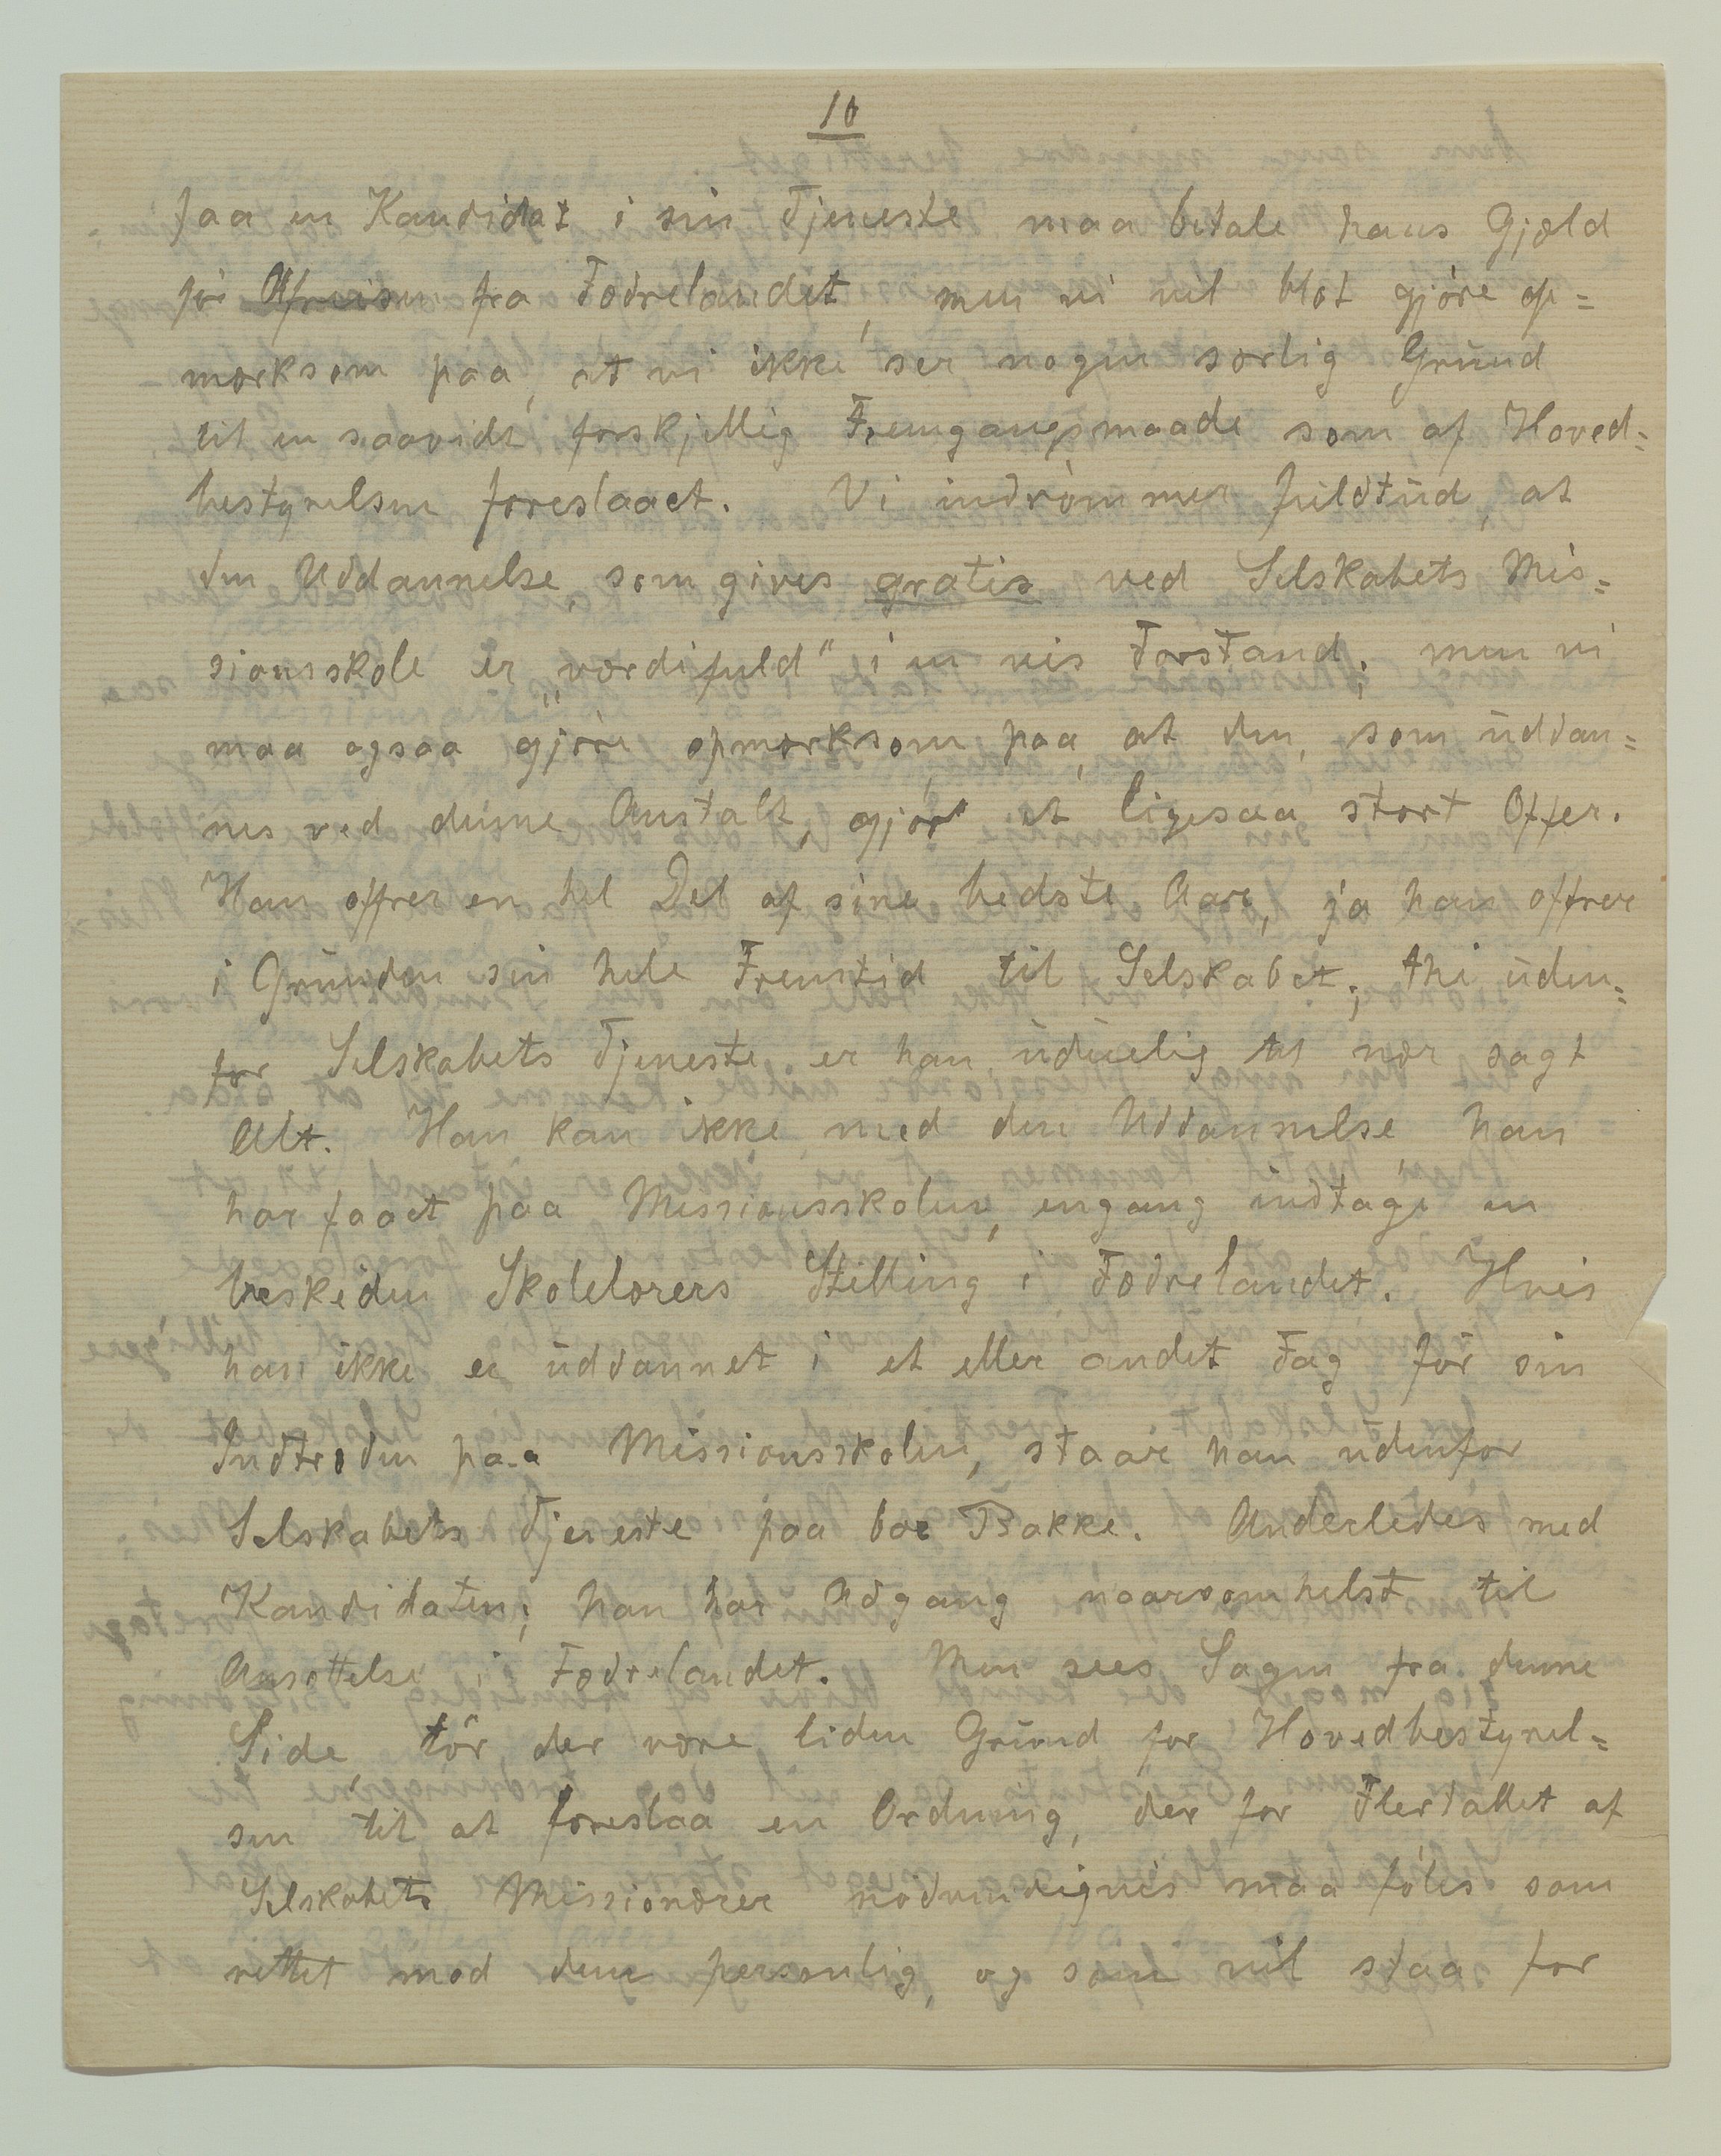 10
faa en Kandidat i sin Tjeneste maa betale hans Gjæld
før Afreisen fra Fædrelandet, men vi vil blot gjøre op=
mærksom paa, at vi ikke ser nogen særlig Grund
til en saavidt forskjellig Fremgangsmaade som af Hoved=
bestyrelsen foreslaaet. Vi indrømmer fuldtud, at
den Uddannelse, som gives gratis ved Selskabets Mis=
sionsskole er „værdifuld" i en vis Forstand; men vi
maa ogsaa gjøre opmærksom paa, at den, som uddan=
nes ved denne Anstalt, gjør et ligesaa stort Offer.
Han offrer en hel Del af sine bedste Aar, ja han offrer
i Grunden sin hele Fremtid til Selskabet; thi uden=
for Selskabets Tjeneste er han uduelig til nær sagt
Alt. Han kan ikke med den Uddannelse, han
har faaet paa Missionsskolen, engang indtage en
beskeden Skolelærers Stilling i Fædrelandet. Hvis
han ikke er uddannet i et eller andet Fag før sin
Indtræden paa Missionsskolen, staar han udenfor
Selskabets Tjeneste paa bar Bakke. Anderledes med
Kandidaten; han har Adgang naarsomhelst til
Ansættelse i Fædrelandet. Men sees Sagen fra denne
Side, tør der være liden Grund for Hovedbestyrel=
sen til at foreslaa en Ordning, der for Flertallet af
Selskabets Missionærer nødvendigvis maa føles som
rettet mod dem personlig, og som vil staa for